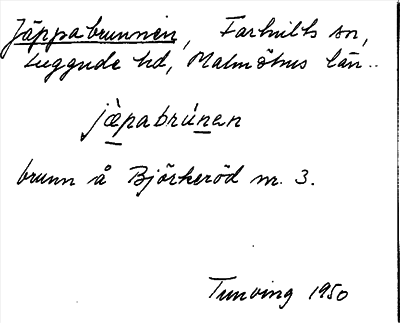 Jäppabrunnen, Farhults sn,
Luggude hd, Malmöhus län..
jàpabrúnen
brunn å Björkeröd nr. 3.
Tunving 1950